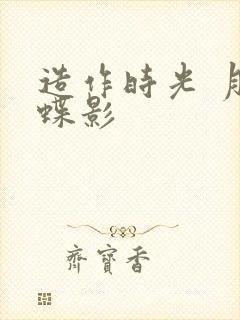 造作時光 月
蝶影
齊寶香